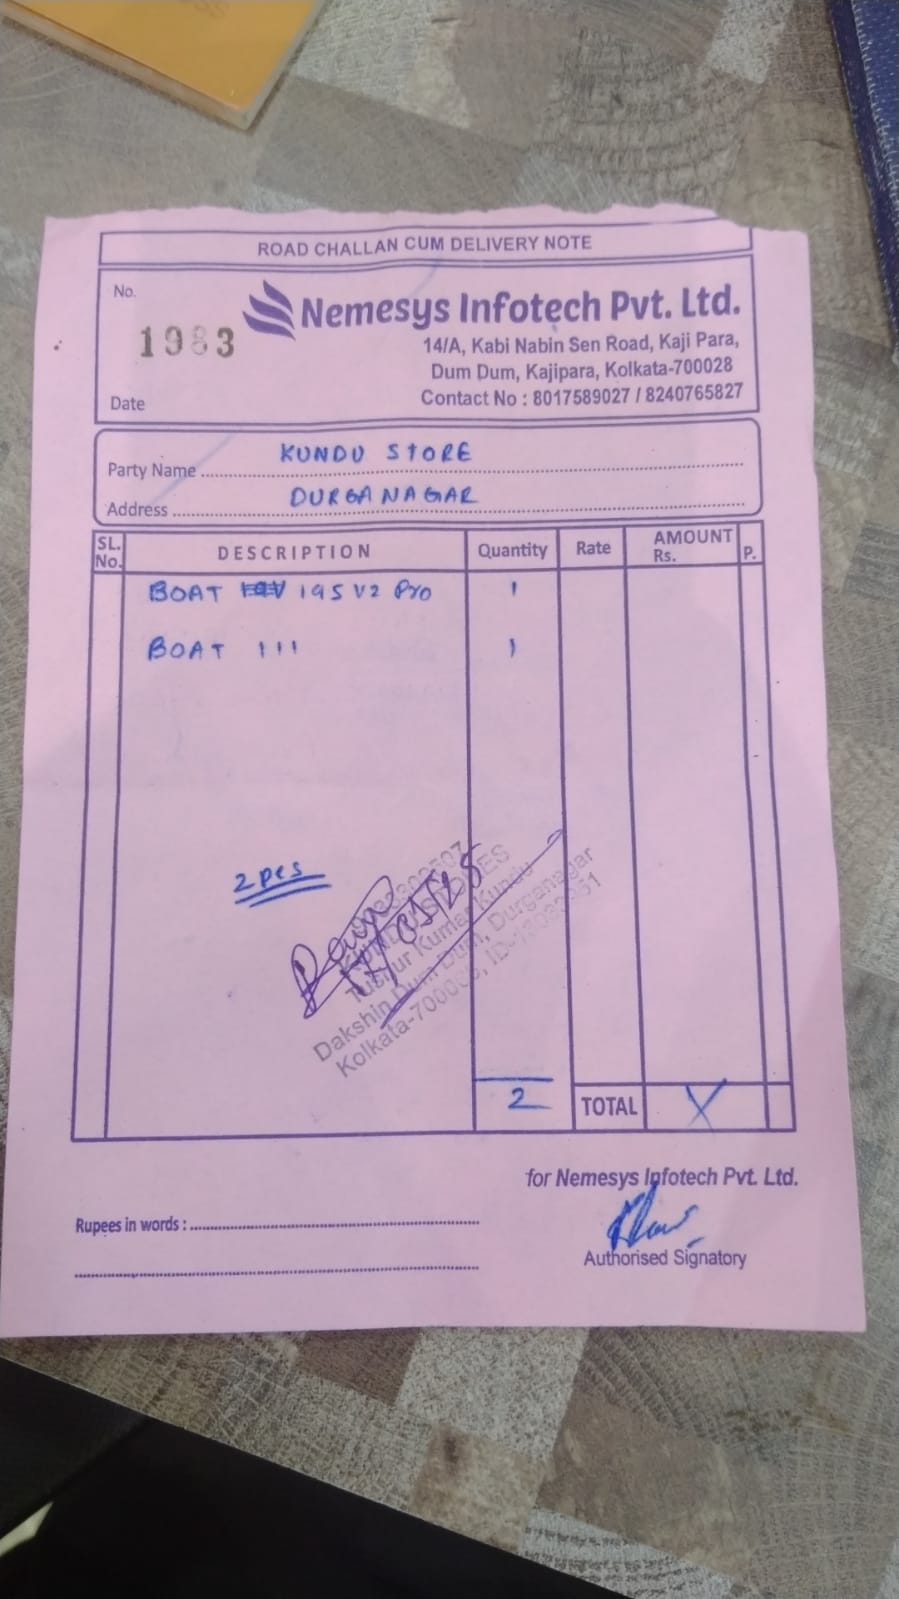 ROAD CHALLAN CUM DELIVERY NOTE
No.
1983
Nemesys Infotech Pvt. Ltd.
14/A, Kabi Nabin Sen Road, Kaji Para,
Dum Dum, Kajipara, Kolkata-700028
Contact No : 8017589027 / 8240765827
Date
Party Name KUNDU STORE
Address DURGANAGAR
SL. No. DESCRIPTION Quantity Rate AMOUNT Rs. P.
BOAT 195 V2 Pro 1
BOAT 111 1
2 pcs
Tushur Kumar Kundu
Dakshin Dum Dum, Durganagar
2 TOTAL X
for Nemesys Infotech Pvt. Ltd.
Rupees in words :
Authorised Signatory